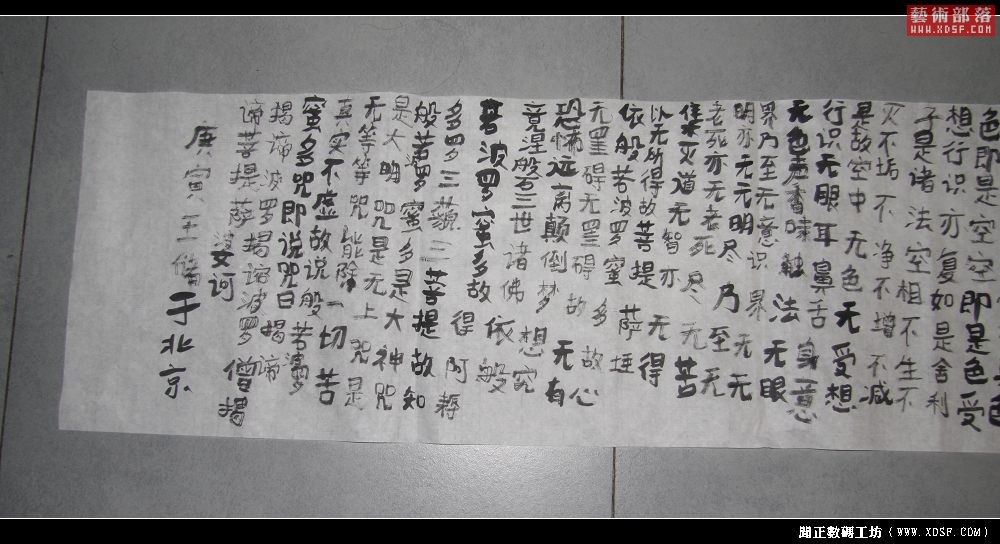 藝術部落
WWW.XDSF.COM
色即是空空即是色受
想行识亦复如是舍利
子是诸法空相不生不
灭不垢不净不增不减
是故空中无色无受想
行识无眼耳鼻舌身意
无色声香味触法无眼
界乃至无意识界无无
明亦无无明尽乃至无
老死亦无老死尽无苦
集灭道无智亦无得
以无所得故菩提萨埵
依般若波罗蜜多故心
无罣碍无罣碍故无有
恐怖远离颠倒梦想究
竟涅般三世诸佛依般
若波罗蜜多故得阿耨
多罗三藐三菩提故知
般若波罗蜜多是大神咒
是大明咒是无上咒是
无等等咒能除一切苦
真实不虚故说般若波罗
蜜多咒即说咒曰揭谛
揭谛波罗揭谛波罗僧揭
谛菩提萨婆诃
庚寅王脩于北京
聞正數碼工坊（WWW.XDSF.COM）